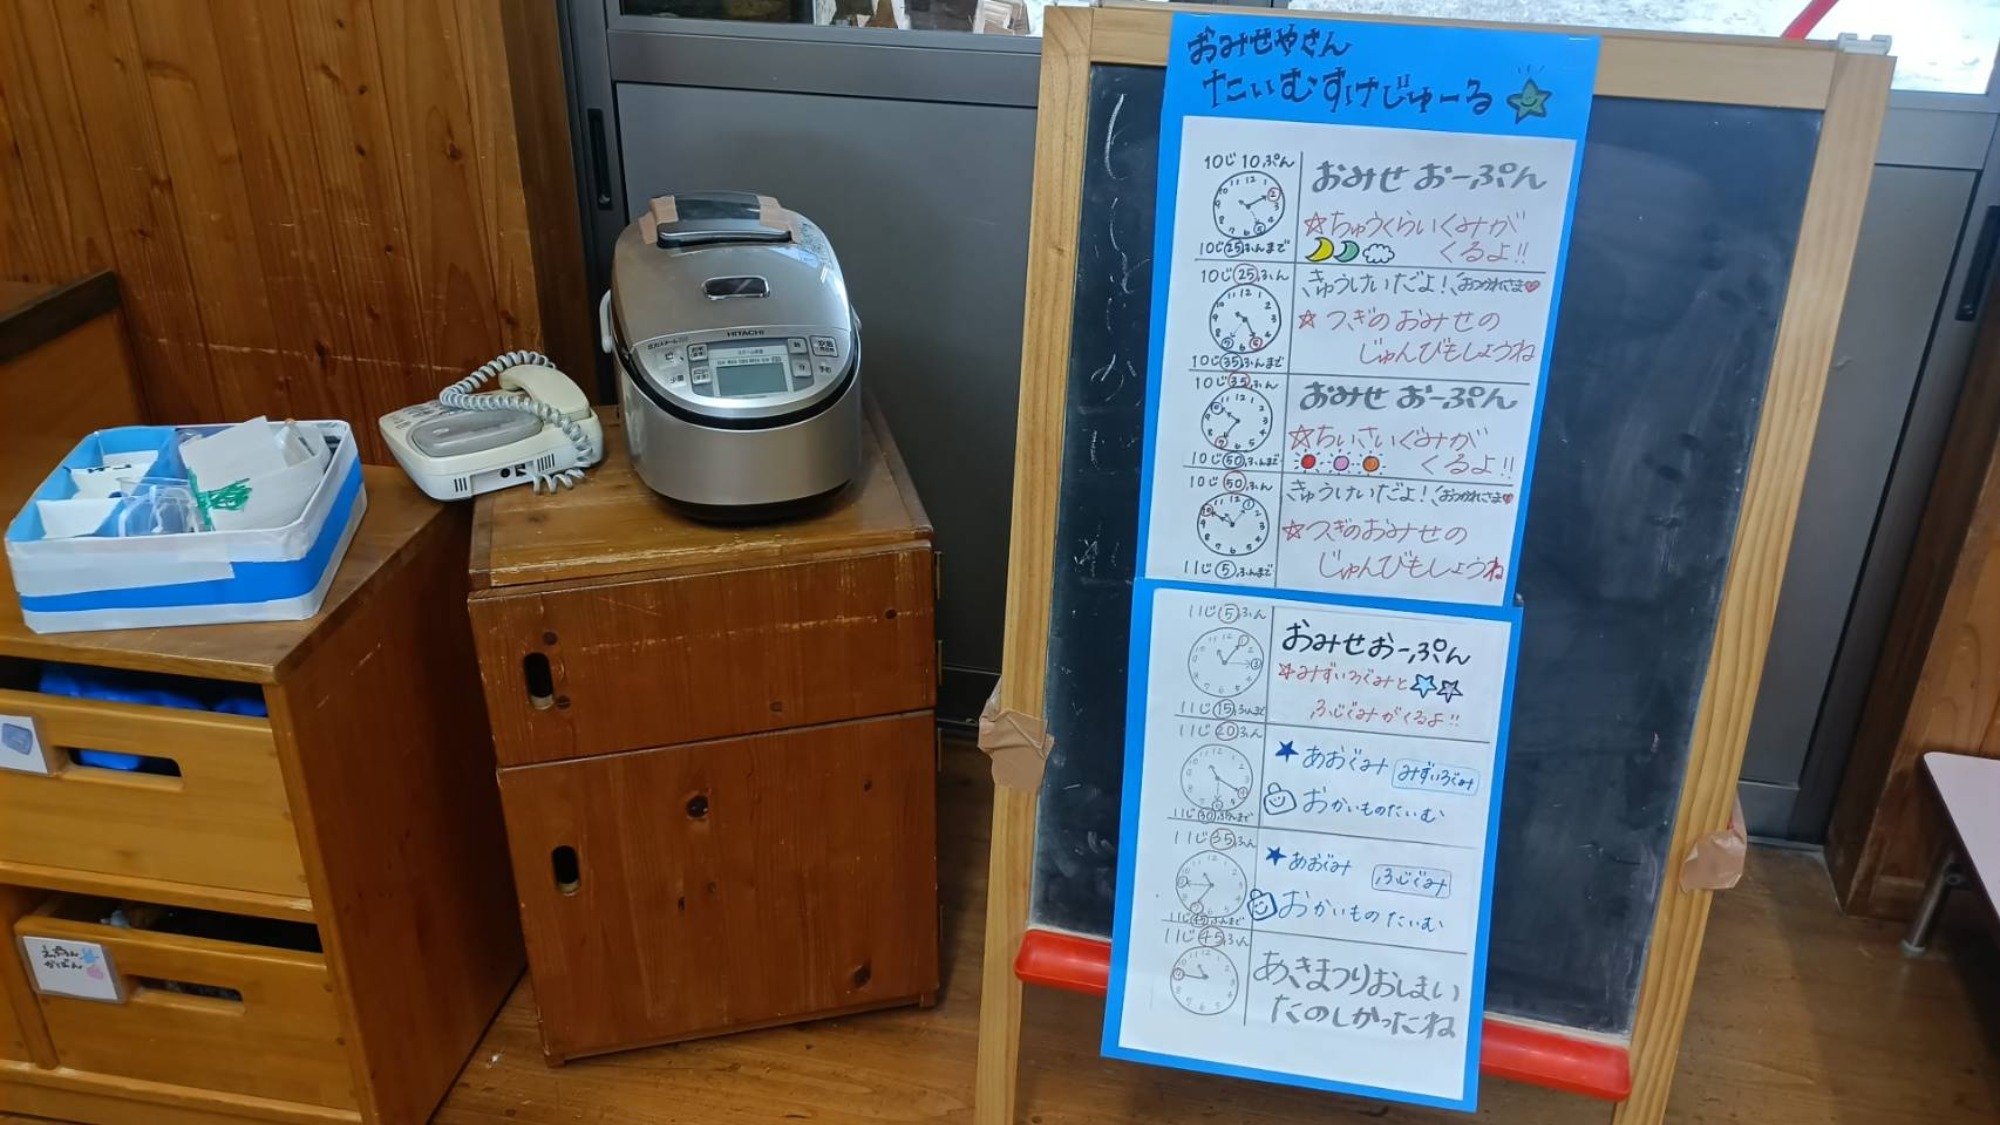 おみせやさん
たいむすけじゅーる
10じ10ぷん
おみせ おーぷん
☆ちゅうくらいぐみが
くるよ!!
10じ25ふんまで
10じ25ふん
きゅうけいだよ! おつかれさま
☆つぎのおみせの
じゅんびもしようね
10じ35ふんまで
10じ35ふん
おみせ おーぷん
☆ちいさいぐみが
くるよ!!
10じ50ふんまで
10じ50ふん
きゅうけいだよ! おつかれさま
☆つぎのおみせの
じゅんびもしようね
11じ5ふんまで
11じ5ふん
おみせおーぷん
☆みずいろぐみと
ふじぐみがくるよ!!
11じ15ふんまで
11じ20ふん
★あおぐみ みずいろぐみ
おかいものたいむ
11じ30ぷんまで
11じ35ふん
★あおぐみ ふじぐみ
おかいものたいむ
11じ45ふんまで
11じ45ふん
あきまつりおしまい
たのしかったね
HITACHI
かばん